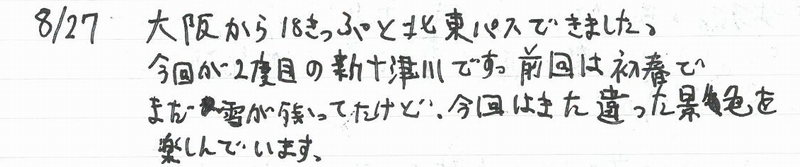 8/27 大阪から18きっぷと北東パスできました。
今回が2度目の新十津川です。前回は初春で
まだ雪が残ってたけど、今回はまた違った景色を
楽しんでいます。